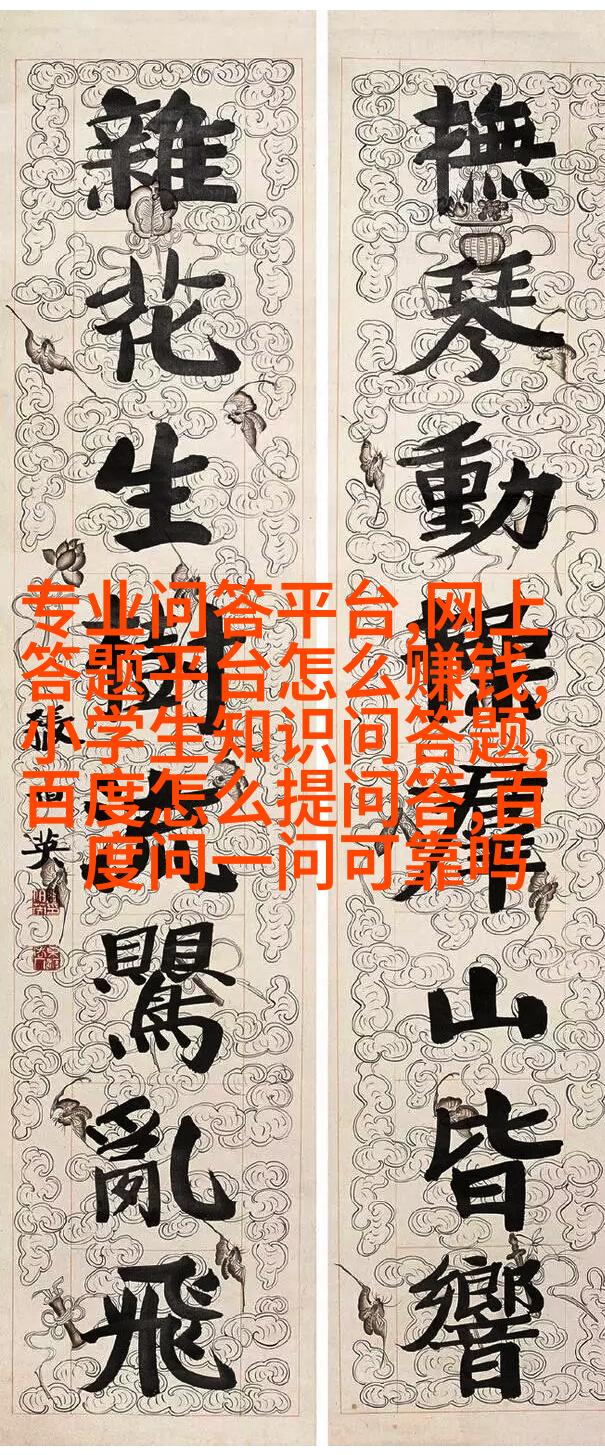 撫琴動操群山皆響
雜花生樹鸎亂飛
張英
专业问答平台,网上
答题平台怎么赚钱,
小学生知识问答题,
百度怎么提问答,百
度问一问可靠吗